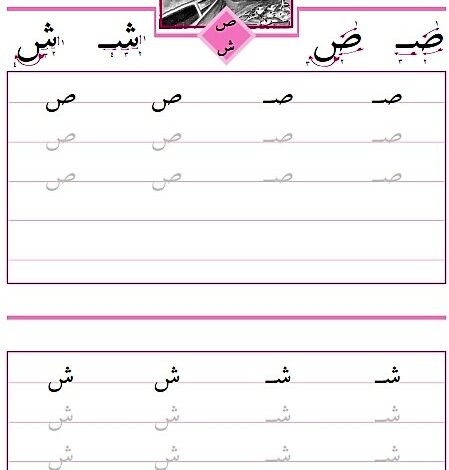 صـ ص
ص
ش
شـ ش
صـ صـ ص ص
صـ صـ ص ص
صـ صـ ص ص
شـ شـ ش ش
شـ شـ ش ش
شـ شـ ش ش